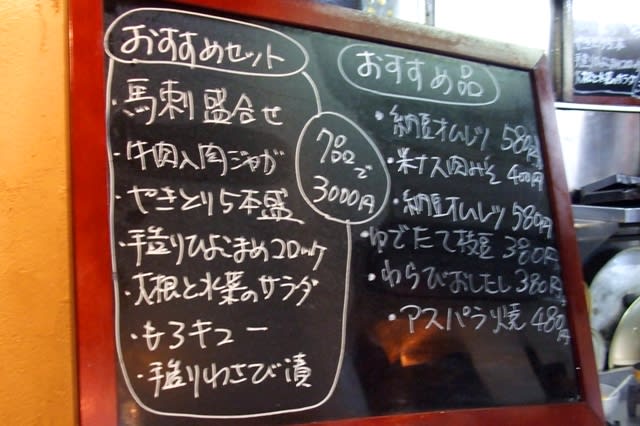 おすすめセット
・馬刺盛合せ
・牛肉入肉ジャガ
・やきとり5本盛
・手造りひよこまめコロッケ
・大根と水菜のサラダ
・もろキュー
・手造りわさび漬
7品で
3000円
おすすめ品
・納豆オムレツ 580円
・米ナス肉みそ 400円
・納豆オムレツ 580円
・ゆでたて枝豆 380円
・わらびおしたし 380円
・アスパラ焼 480円